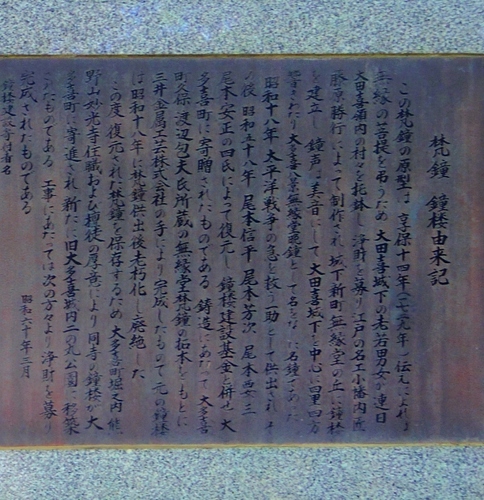 梵鐘 鐘楼由来記
この梵鐘の原型は 享保十四年(一七二九年)伝えによれば
無縁の菩提を弔うため 大田喜城下の老若男女が連日
大田喜領内の村々を托鉢し 浄財を募り江戸の名工小幡内匠
藤原勝行によって制作され 城下新町無縁堂の丘に鐘楼
を建立 鐘声は美音にして 大田喜城下を中心に四里四方
響きわたり 大多喜八景無縁堂晩鐘として名をなした名鐘であった
昭和十八年 太平洋戦争の急を救う助として供出され
の後 昭和五十八年 尾本信平 尾本芳次 尾本酉三
尾本安正の四氏によって復元し 鐘楼建設基金と併せ 大
多喜町に寄贈されたものである 鋳造にあたって 大多喜
町久保 渡辺包夫氏所蔵の無縁堂梵鐘の拓本をもとに
三井金属工芸株式会社の手により完成したもので 元の鐘楼
は昭和十八年に梵鐘供出後老朽化し 廃絶した
この度復元された梵鐘を保存するため 大多喜町堀之内 能
野山妙光寺住職および檀徒の厚意により 同寺の鐘楼が大
多喜町に寄進され 新たに旧大多喜城内二の丸公園に移築
したものである 工事にあたっては次の方々より浄財を募り
完成されたものである
昭和六十年三月
鐘楼建設寄付者名